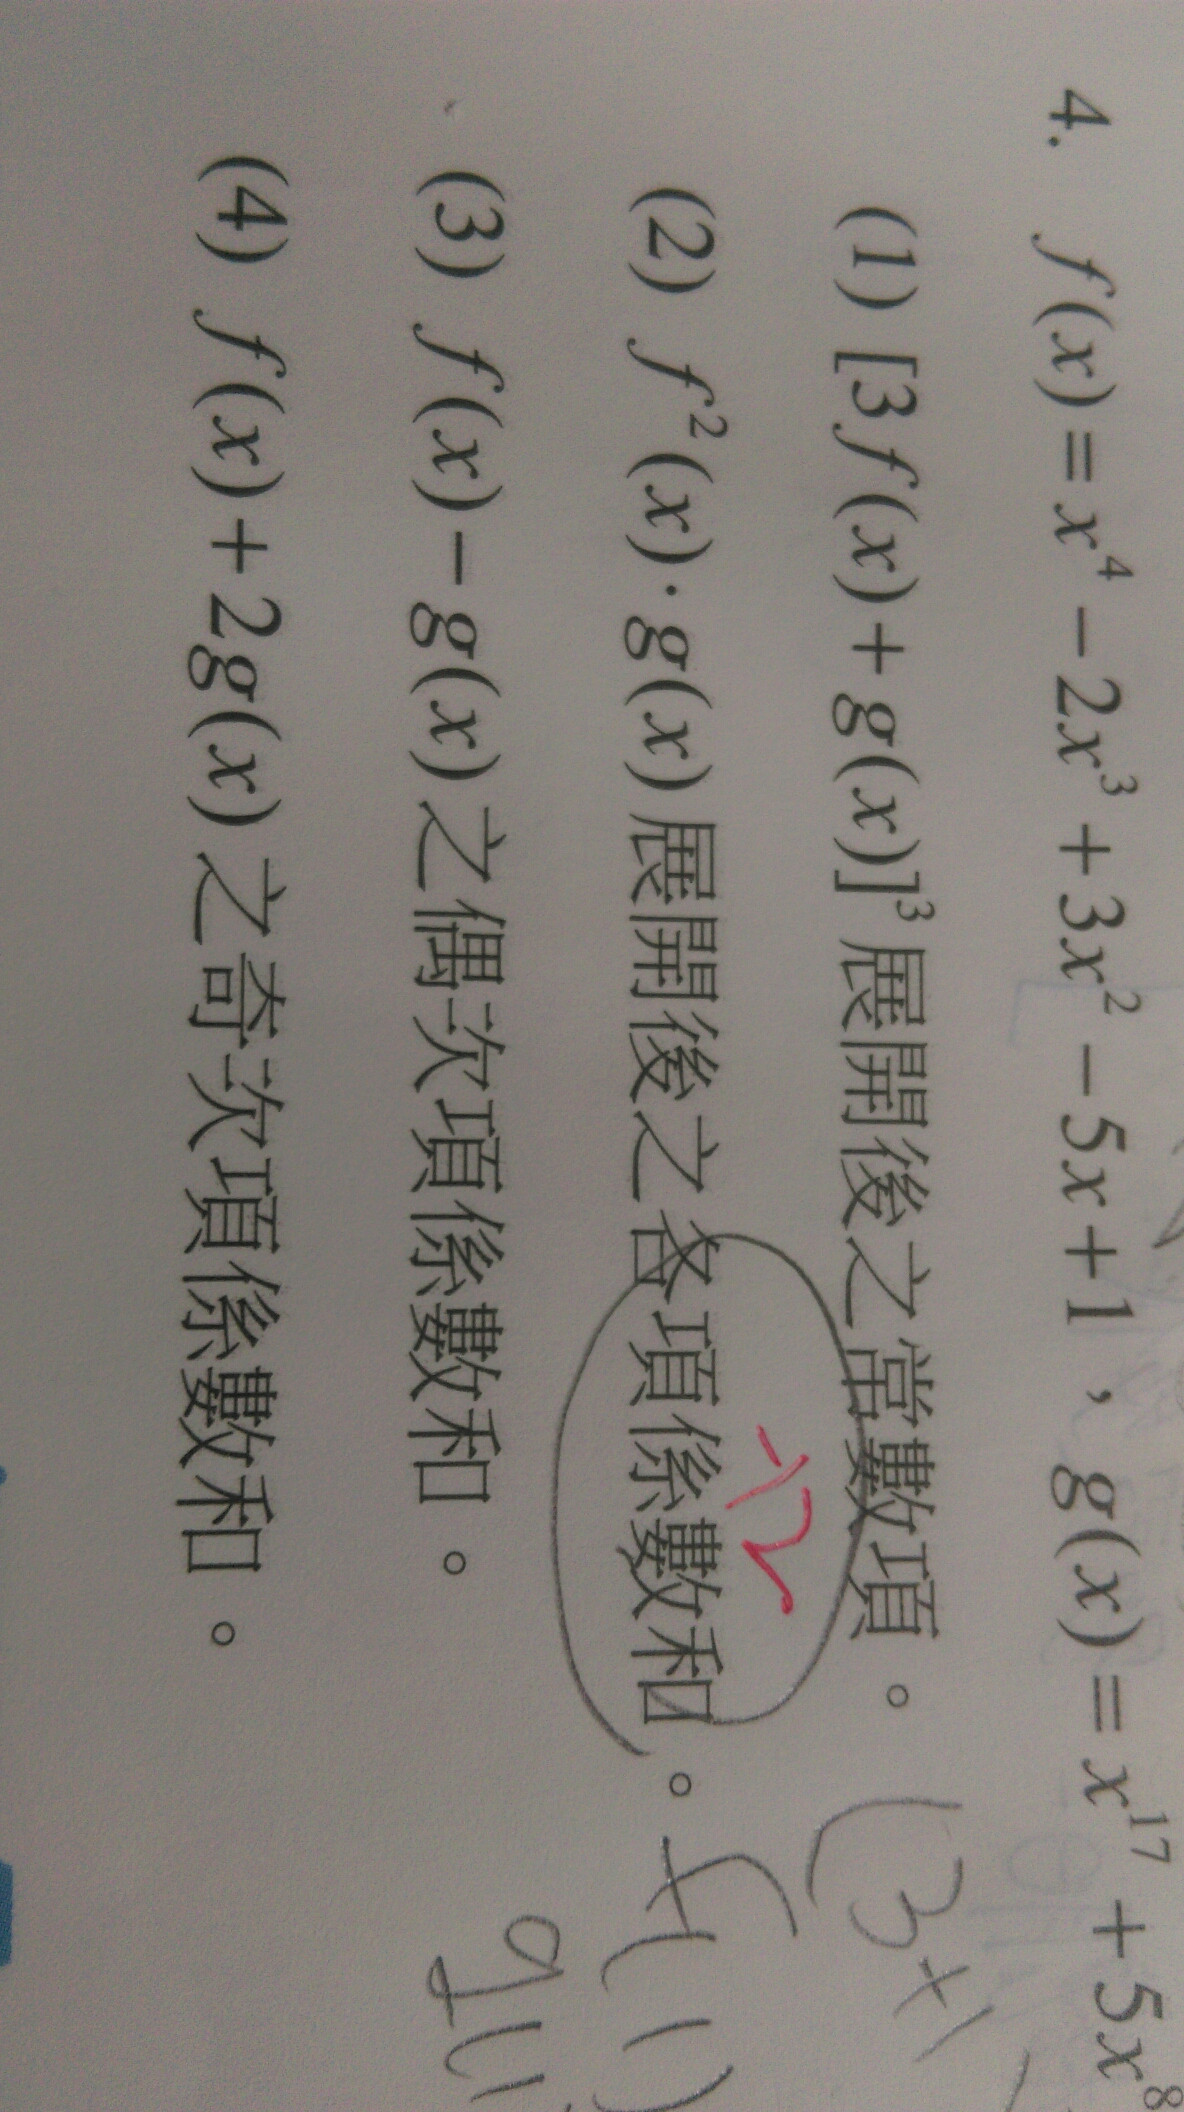 4. f(x)=x⁴-2x³+3x²-5x+1，g(x)=x¹⁷+5x⁸
(1) [3f(x)+g(x)]³展開後之常數項。 (3+1
(2) f²(x)·g(x)展開後之各項係數和。 f(1)
(3) f(x)-g(x)之偶次項係數和。 g(1
(4) f(x)+2g(x)之奇次項係數和。